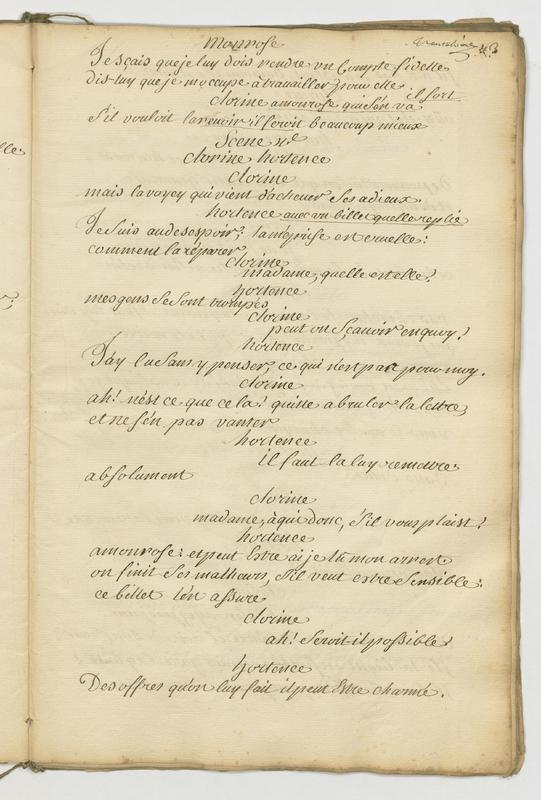 monrose
Je sçais que je luy dois rendre un Compte fidelle
dis-luy que je m'occupe à travailler pour elle
il sort
clorine a monrose qui s'en va
s'il vouloit la revoir il seroit beaucoup mieux
Scene
clorine hortence
clorine
mais la voycy qui vient d'achever ses adieux.
hortence avec un billet quelle replie
Je suis au desespoir; la méprise est cruelle:
comment la réparer
clorine
madame, quelle est elle?
hortence
mes gens se sont trompés
clorine
peut on sçavoir en quoy?
hortence
J'ay lu sans y penser, ce qui n'est pas pour moy.
clorine
ah! n'est ce que cela? quitte a bruler la lettre,
et ne s'en pas vanter
hortence
il faut la luy remettre
absolument
clorine
madame, à qui donc, s'il vous plaist?
hortence
a monrose: et peut Estre ai je lu mon arrest.
on finit ses malheurs, s'il veut estre sensible:
ce billet l'en assure
clorine
ah! seroit il possible?
hortence
Des offres qu'on luy fait il peut Estre charmé.